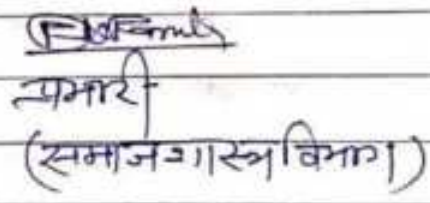 प्रभारी
(समाजशास्त्र विभाग)